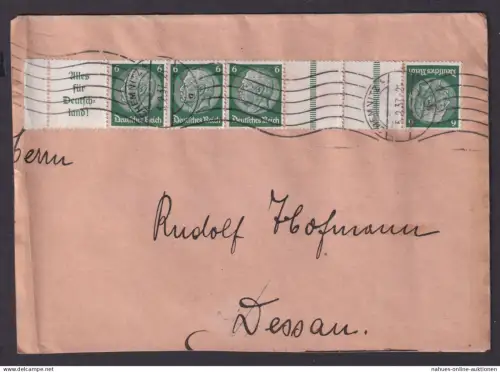 Alles
für
Deutsch-
land!
6 6 6
Deutsches Reich Deutsches Reich Deutsches Reich
Deutsches Reich
6
Herrn
Rudolf Hofmann
Dessau.
www.stampsx.com
nahues-online-auktionen